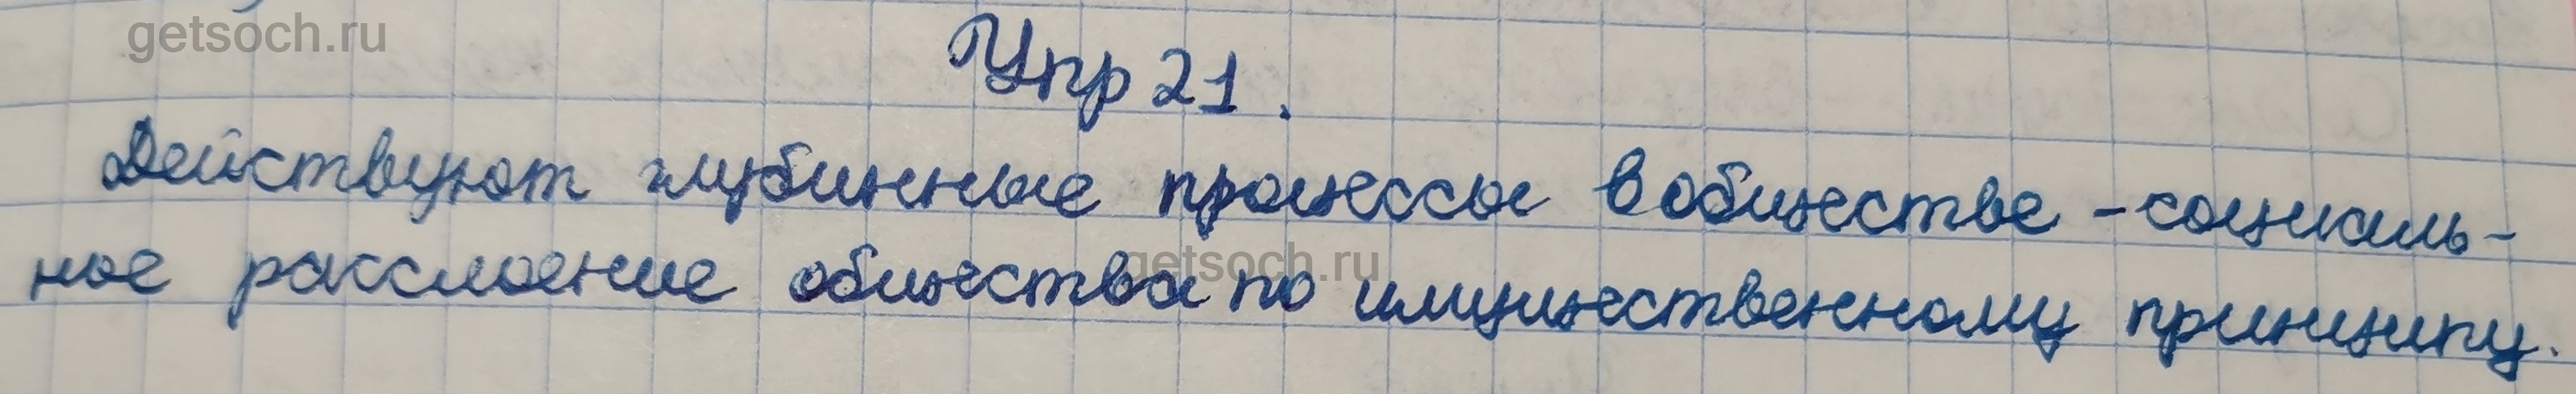 getsoch.ru
Упр 21.
Действуют глубинные процессы в обществе - социаль-
ное расслоение общества по имущественному принципу.
getsoch.ru